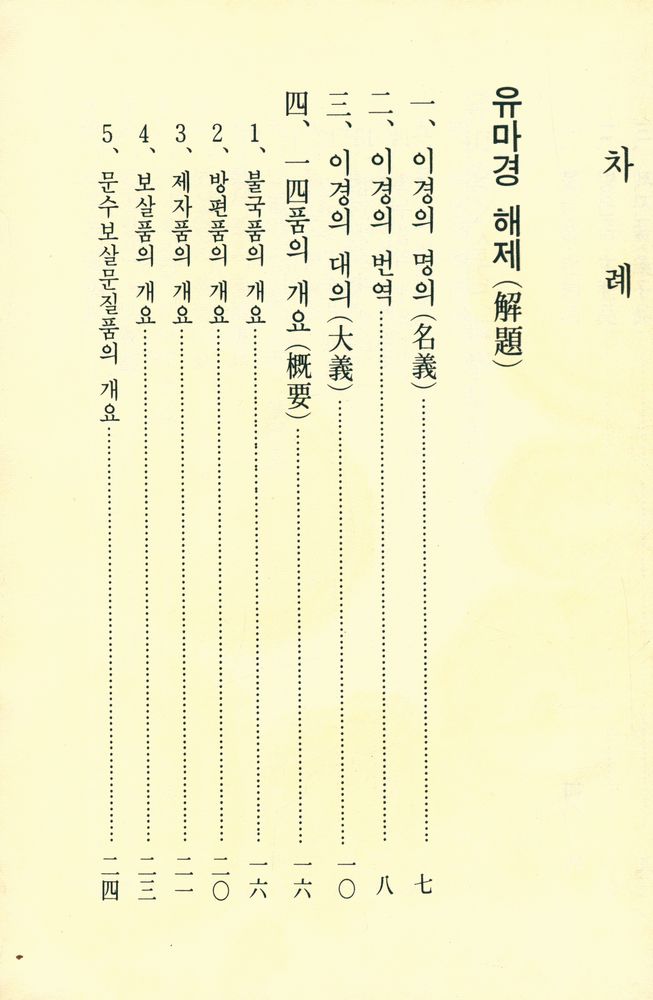 차 례
유마경 해제(解題)
一、이경의 명의(名義)……七
二、이경의 번역……八
三、이경의 대의(大義)……一〇
四、一四품의 개요(概要)……一六
1、불국품의 개요……一六
2、방편품의 개요……二〇
3、제자품의 개요……二一
4、보살품의 개요……二三
5、문수보살문질품의 개요……二四